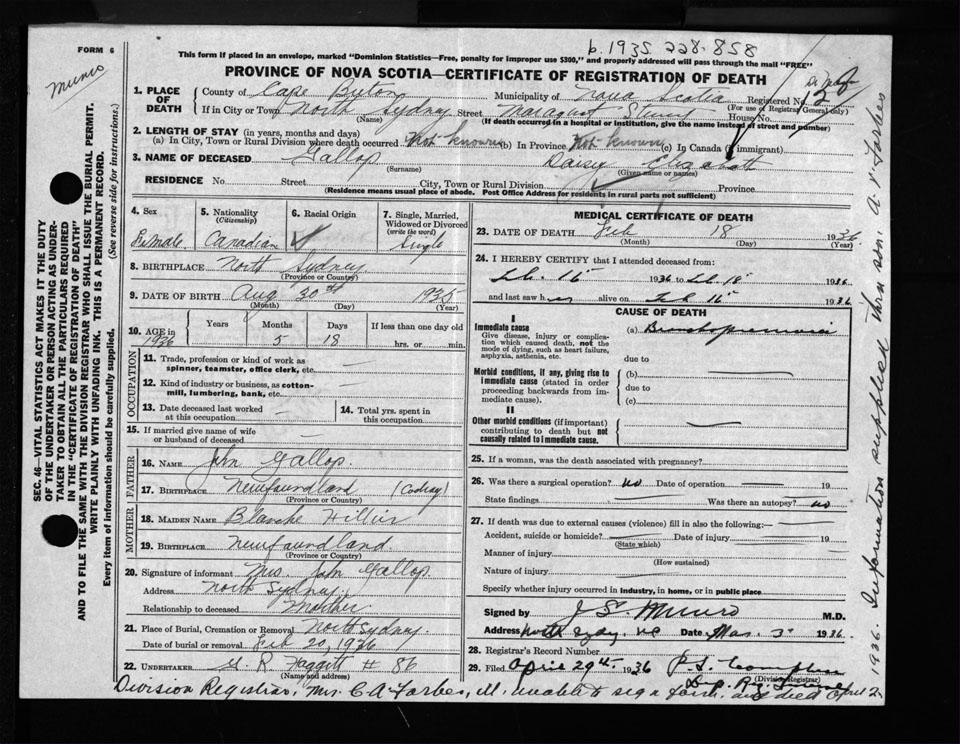 b. 1935 228-858
FORM 6
Munro
This form if placed in an envelope, marked "Dominion Statistics—Free, penalty for improper use $300," and properly addressed will pass through the mail "FREE"
PROVINCE OF NOVA SCOTIA—CERTIFICATE OF REGISTRATION OF DEATH
1. PLACE OF DEATH
County of Cape Breton Municipality of Nova Scotia Registered No. 12
(For use of Registrar General only)
If in City or Town North Sydney Street House No.
(Name) (If death occurred in a hospital or institution, give the name instead of street and number)
2. LENGTH OF STAY (in years, months and days)
(a) In City, Town or Rural Division where death occurred Not known (b) In Province Not known (c) In Canada (if immigrant)
3. NAME OF DECEASED Gallop Daisy Elizabeth
(Surname) (Given name or names)
RESIDENCE No. Street City, Town or Rural Division Province
(Residence means usual place of abode. Post Office Address for residents in rural parts not sufficient)
SEC. 46—VITAL STATISTICS ACT MAKES IT THE DUTY
OF THE UNDERTAKER OR PERSON ACTING AS UNDER-
TAKER TO OBTAIN ALL THE PARTICULARS REQUIRED
IN THE "CERTIFICATE OF REGISTRATION OF DEATH"
AND TO FILE THE SAME WITH THE DIVISION REGISTRAR WHO SHALL ISSUE THE BURIAL PERMIT.
WRITE PLAINLY WITH UNFADING INK. THIS IS A PERMANENT RECORD.
Every item of information should be carefully supplied. (See reverse side for instructions.)
4. Sex
Female
5. Nationality
(Citizenship)
Canadian
6. Racial Origin
7. Single, Married,
Widowed or Divorced
(write the word)
Single
8. BIRTHPLACE North Sydney
(Province or Country)
9. DATE OF BIRTH Aug 30th 1935
(Month) (Day) (Year)
10. AGE in
1936
Years Months Days If less than one day old
5 18 hrs. or min.
OCCUPATION
11. Trade, profession or kind of work as
spinner, teamster, office clerk, etc.
12. Kind of industry or business, as cotton-
mill, lumbering, bank, etc.
13. Date deceased last worked
at this occupation
14. Total yrs. spent in
this occupation
15. If married give name of wife
or husband of deceased
FATHER
16. NAME John Gallop
17. BIRTHPLACE Newfoundland (Codroy)
(Province or Country)
MOTHER
18. MAIDEN NAME Blanche Hillier
19. BIRTHPLACE Newfoundland
(Province or Country)
20. Signature of informant Mrs. John Gallop
Address North Sydney
Relationship to deceased Mother
21. Place of Burial, Cremation or Removal North Sydney
Date of burial or removal Feb 20, 1936
22. UNDERTAKER # 86
(Name and address)
MEDICAL CERTIFICATE OF DEATH
23. DATE OF DEATH Feb 18 1936
(Month) (Day) (Year)
24. I HEREBY CERTIFY that I attended deceased from:
Feb. 15 1936 to Feb. 18 1936
and last saw her alive on Feb 15 1936
CAUSE OF DEATH
I
Immediate cause
Give disease, injury or complica-
tion which caused death, not the
mode of dying, such as heart failure,
asphyxia, asthenia, etc.
(a) Bronchopneumonia
due to
Morbid conditions, if any, giving rise to
immediate cause (stated in order
proceeding backwards from im-
mediate cause).
(b)
due to
(c)
II
Other morbid conditions (if important)
contributing to death but not
causally related to immediate cause.
25. If a woman, was the death associated with pregnancy?
26. Was there a surgical operation? no Date of operation 19
State findings Was there an autopsy? no
27. If death was due to external causes (violence) fill in also the following:
Accident, suicide or homicide? Date of injury 19
(State which)
Manner of injury
(How sustained)
Nature of injury
Specify whether injury occurred in Industry, in home, or in public place
Signed by J S. Munro M.D.
Address North Sydney, NS Date Mar. 3 1936
28. Registrar's Record Number
29. Filed April 29th 1936
(Division Registrar)
Division Registrar, Mrs. C. A. Forbes, ill. unable to sign form. and died April 2
1936. Information supplied thro son. A. V. Forbes